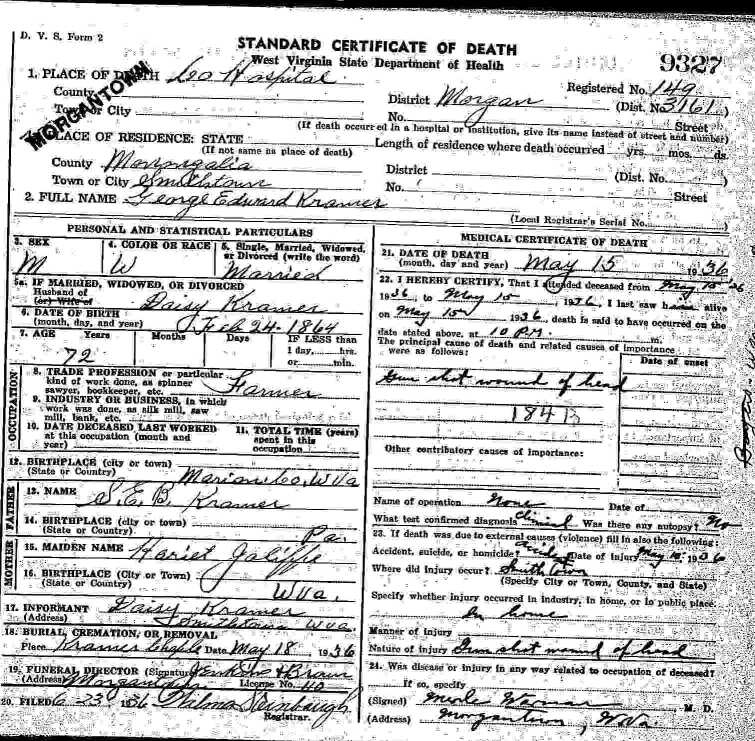 D. V. S. Form 2
STANDARD CERTIFICATE OF DEATH
West Virginia State Department of Health
9327
1. PLACE OF DEATH Leo Hospital
Registered No. 149
County
District Morgan (Dist. No. 3161)
Town or City
No. Street
MORGANTOWN
(If death occurred in a hospital or institution, give its name instead of street and number)
PLACE OF RESIDENCE: STATE
(If not same as place of death)
Length of residence where death occurred yrs. mos. ds.
County Monongalia
District (Dist. No. )
Town or City Smithtown
No. Street
2. FULL NAME George Edward Kramer
(Local Registrar's Serial No. )
PERSONAL AND STATISTICAL PARTICULARS
3. SEX M
4. COLOR OR RACE W
5. Single, Married, Widowed, or Divorced (write the word) Married
5a. IF MARRIED, WIDOWED, OR DIVORCED
Husband of
(or) Wife of Daisy Kramer
6. DATE OF BIRTH
(month, day, and year) Feb 24 - 1864
7. AGE Years Months Days IF LESS than
1 day, hrs.
or min.
72
OCCUPATION
8. TRADE PROFESSION or particular
kind of work done, as spinner
sawyer, bookkeeper, etc. Farmer
9. INDUSTRY OR BUSINESS, in which
work was done, as silk mill, saw
mill, bank, etc.
10. DATE DECEASED LAST WORKED
at this occupation (month and
year)
11. TOTAL TIME (years)
spent in this
occupation
12. BIRTHPLACE (city or town)
(State or Country) Marion Co, W Va
FATHER
13. NAME S. E. B. Kramer
14. BIRTHPLACE (city or town)
(State or Country) Pa.
MOTHER
15. MAIDEN NAME Hariet
16. BIRTHPLACE (City or Town)
(State or Country) W Va.
17. INFORMANT Daisy Kramer
(Address) Smithtown W Va
18. BURIAL, CREMATION, OR REMOVAL
Place Kramer Chaple Date May 18 1936
19. FUNERAL DIRECTOR (Signature) & Brown
(Address) Morgantown License No. 110
20. FILED 6 23 1936
Registrar.
MEDICAL CERTIFICATE OF DEATH
21. DATE OF DEATH
(month, day and year) May 15 1936
22. I HEREBY CERTIFY, That I attended deceased from May 15 36
1936, to May 15 1936, I last saw him alive
on May 15 1936, death is said to have occurred on the
date stated above, at 10 P.M. m.
The principal cause of death and related causes of importance
were as follows:
Date of onset
Gun shot wound of head
184 B
Other contributory causes of importance:
Name of operation None Date of
What test confirmed diagnosis Clinical Was there any autopsy? No
23. If death was due to external causes (violence) fill in also the following:
Accident, suicide, or homicide? Date of Injury May 15 1936
Where did injury occur? Smithtown
(Specify City or Town, County, and State)
Specify whether injury occurred in industry, in home, or in public place.
In home
Manner of injury
Nature of injury Gun shot wound of head
24. Was disease or injury in any way related to occupation of deceased?
If so, specify
(Signed) M. D.
(Address) Morgantown, W Va